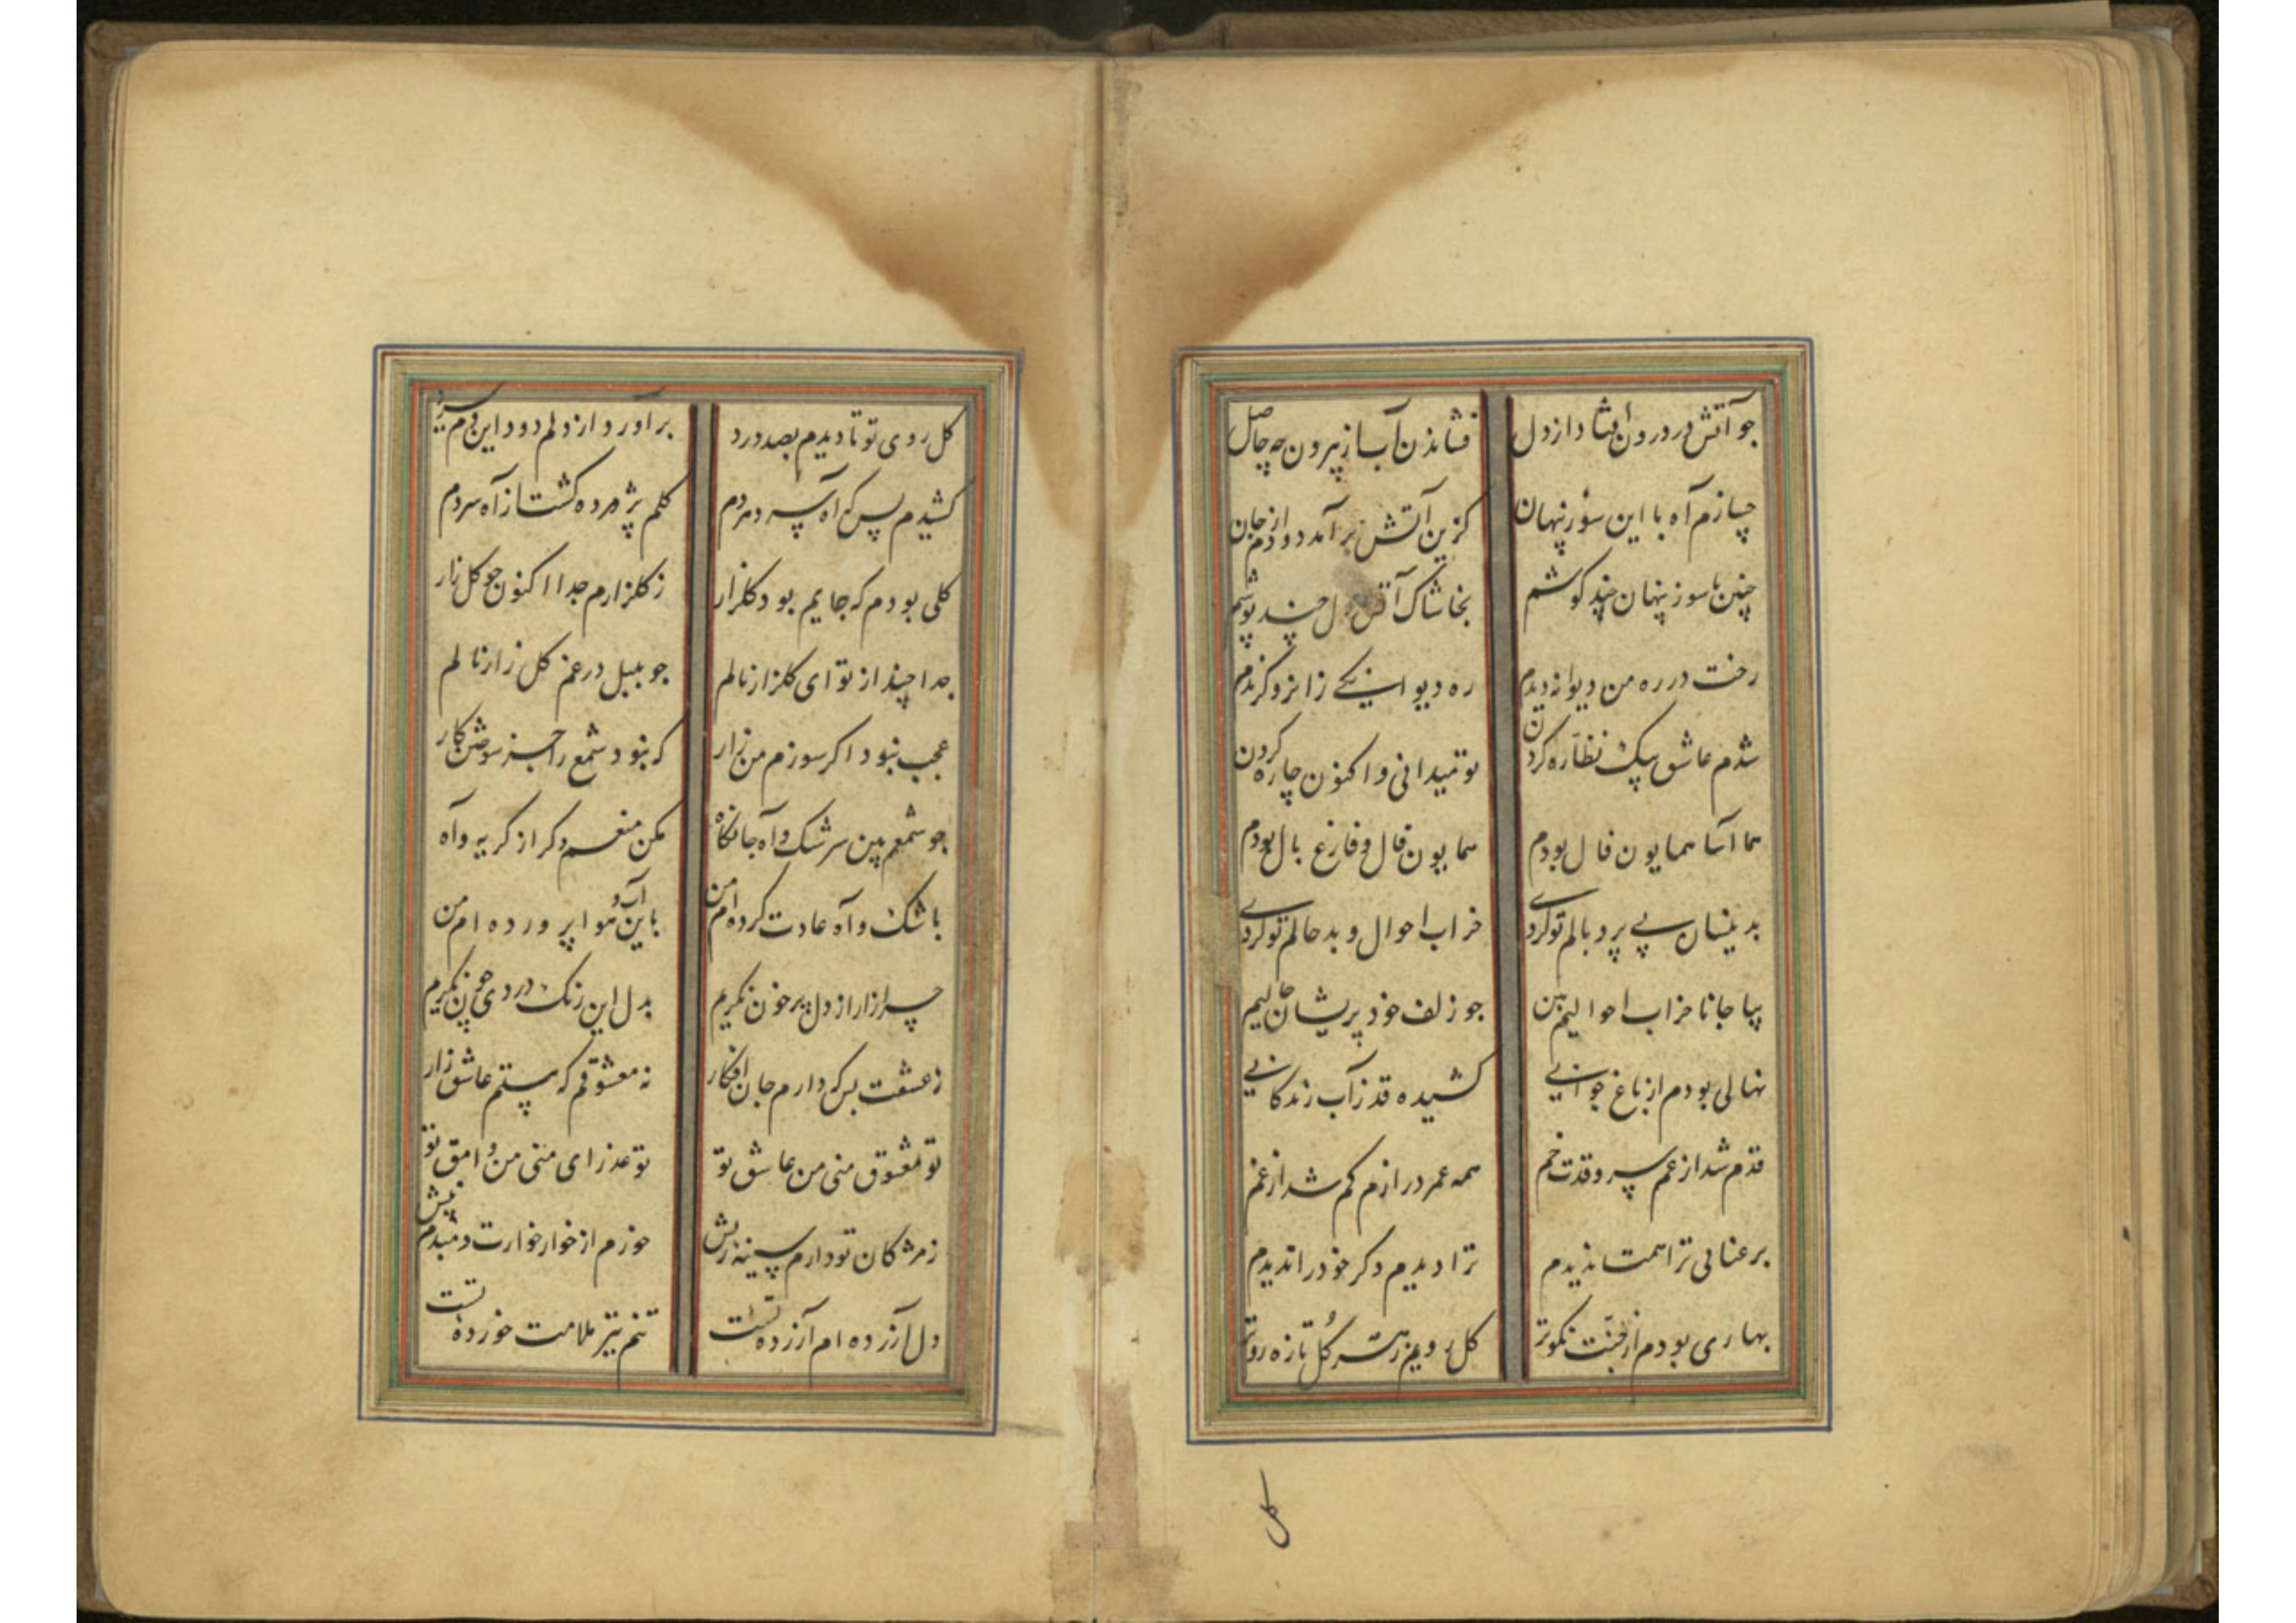 جو آتش در درون افتاد از دل فشاندن آب از بیرون چه حاصل
چسازم آه با این سوز پنهان کزین آتش برآمد دودم از جان
چنین با سوز پنهان چند کوشم بخاشاک آتش دل چند پوشم
رخت در ره من دیوانه دیدم ره دیوانکی زانرو کزیدم
شدم عاشق بیک نظاره کردن تو میدانی و اکنون چاره کردن
هما آسا همایون فال بودم همایون فال و فارغ بال بودم
بدینسان بی پر و بالم تو کردی خراب احوال و بدحالم تو کردی
بیا جانا خراب احوالیم بین جو زلف خود پریشان حالیم
نهالی بودم از باغ جوانی کشیده قد ز آب زندکانی
قدم شد از غم سرو قدت خم همه عمر درازم کم شد از غم
برعنائی ترا همتا ندیدم ترا دیدم دکر خود را ندیدم
بهاری بودم از جنت نکوتر کل رویم ز هر کل تازه روتر
کل
کل روی تو تا دیدم بصد درد برآورد از دلم دود این دم سرد
کشیدم بس که آه سرد هردم کلم پژمرده کشت از آه سردم
کلی بودم که جایم بود کلزار ز کلزارم جدا اکنون جو کل زار
جدا چند از تو ای کلزار نالم جو بلبل در غم کل زار نالم
عجب نبود اکر سوزم من زار که نبود شمع را جز سوختن کار
جو شمعم بین سرشک و آه جانکاه مکن منعم دکر از کریه و آه
باشک و آه عادت کرده ام من باین آب و هوا پرورده ام من
چرا زار از دل پرخون نکریم بدل این رنک دردی چون نکریم
ز عشقت بس که دارم جان افکار نه معشوقم که هستم عاشق زار
تو معشوق منی من عاشق تو تو عذرای منی من وامق تو
ز مژکان تو دارم سینه ریش خورم از خار خارت دمبدم نیش
دل آزرده ام آزرده تست تنم تیر ملامت خورده تست